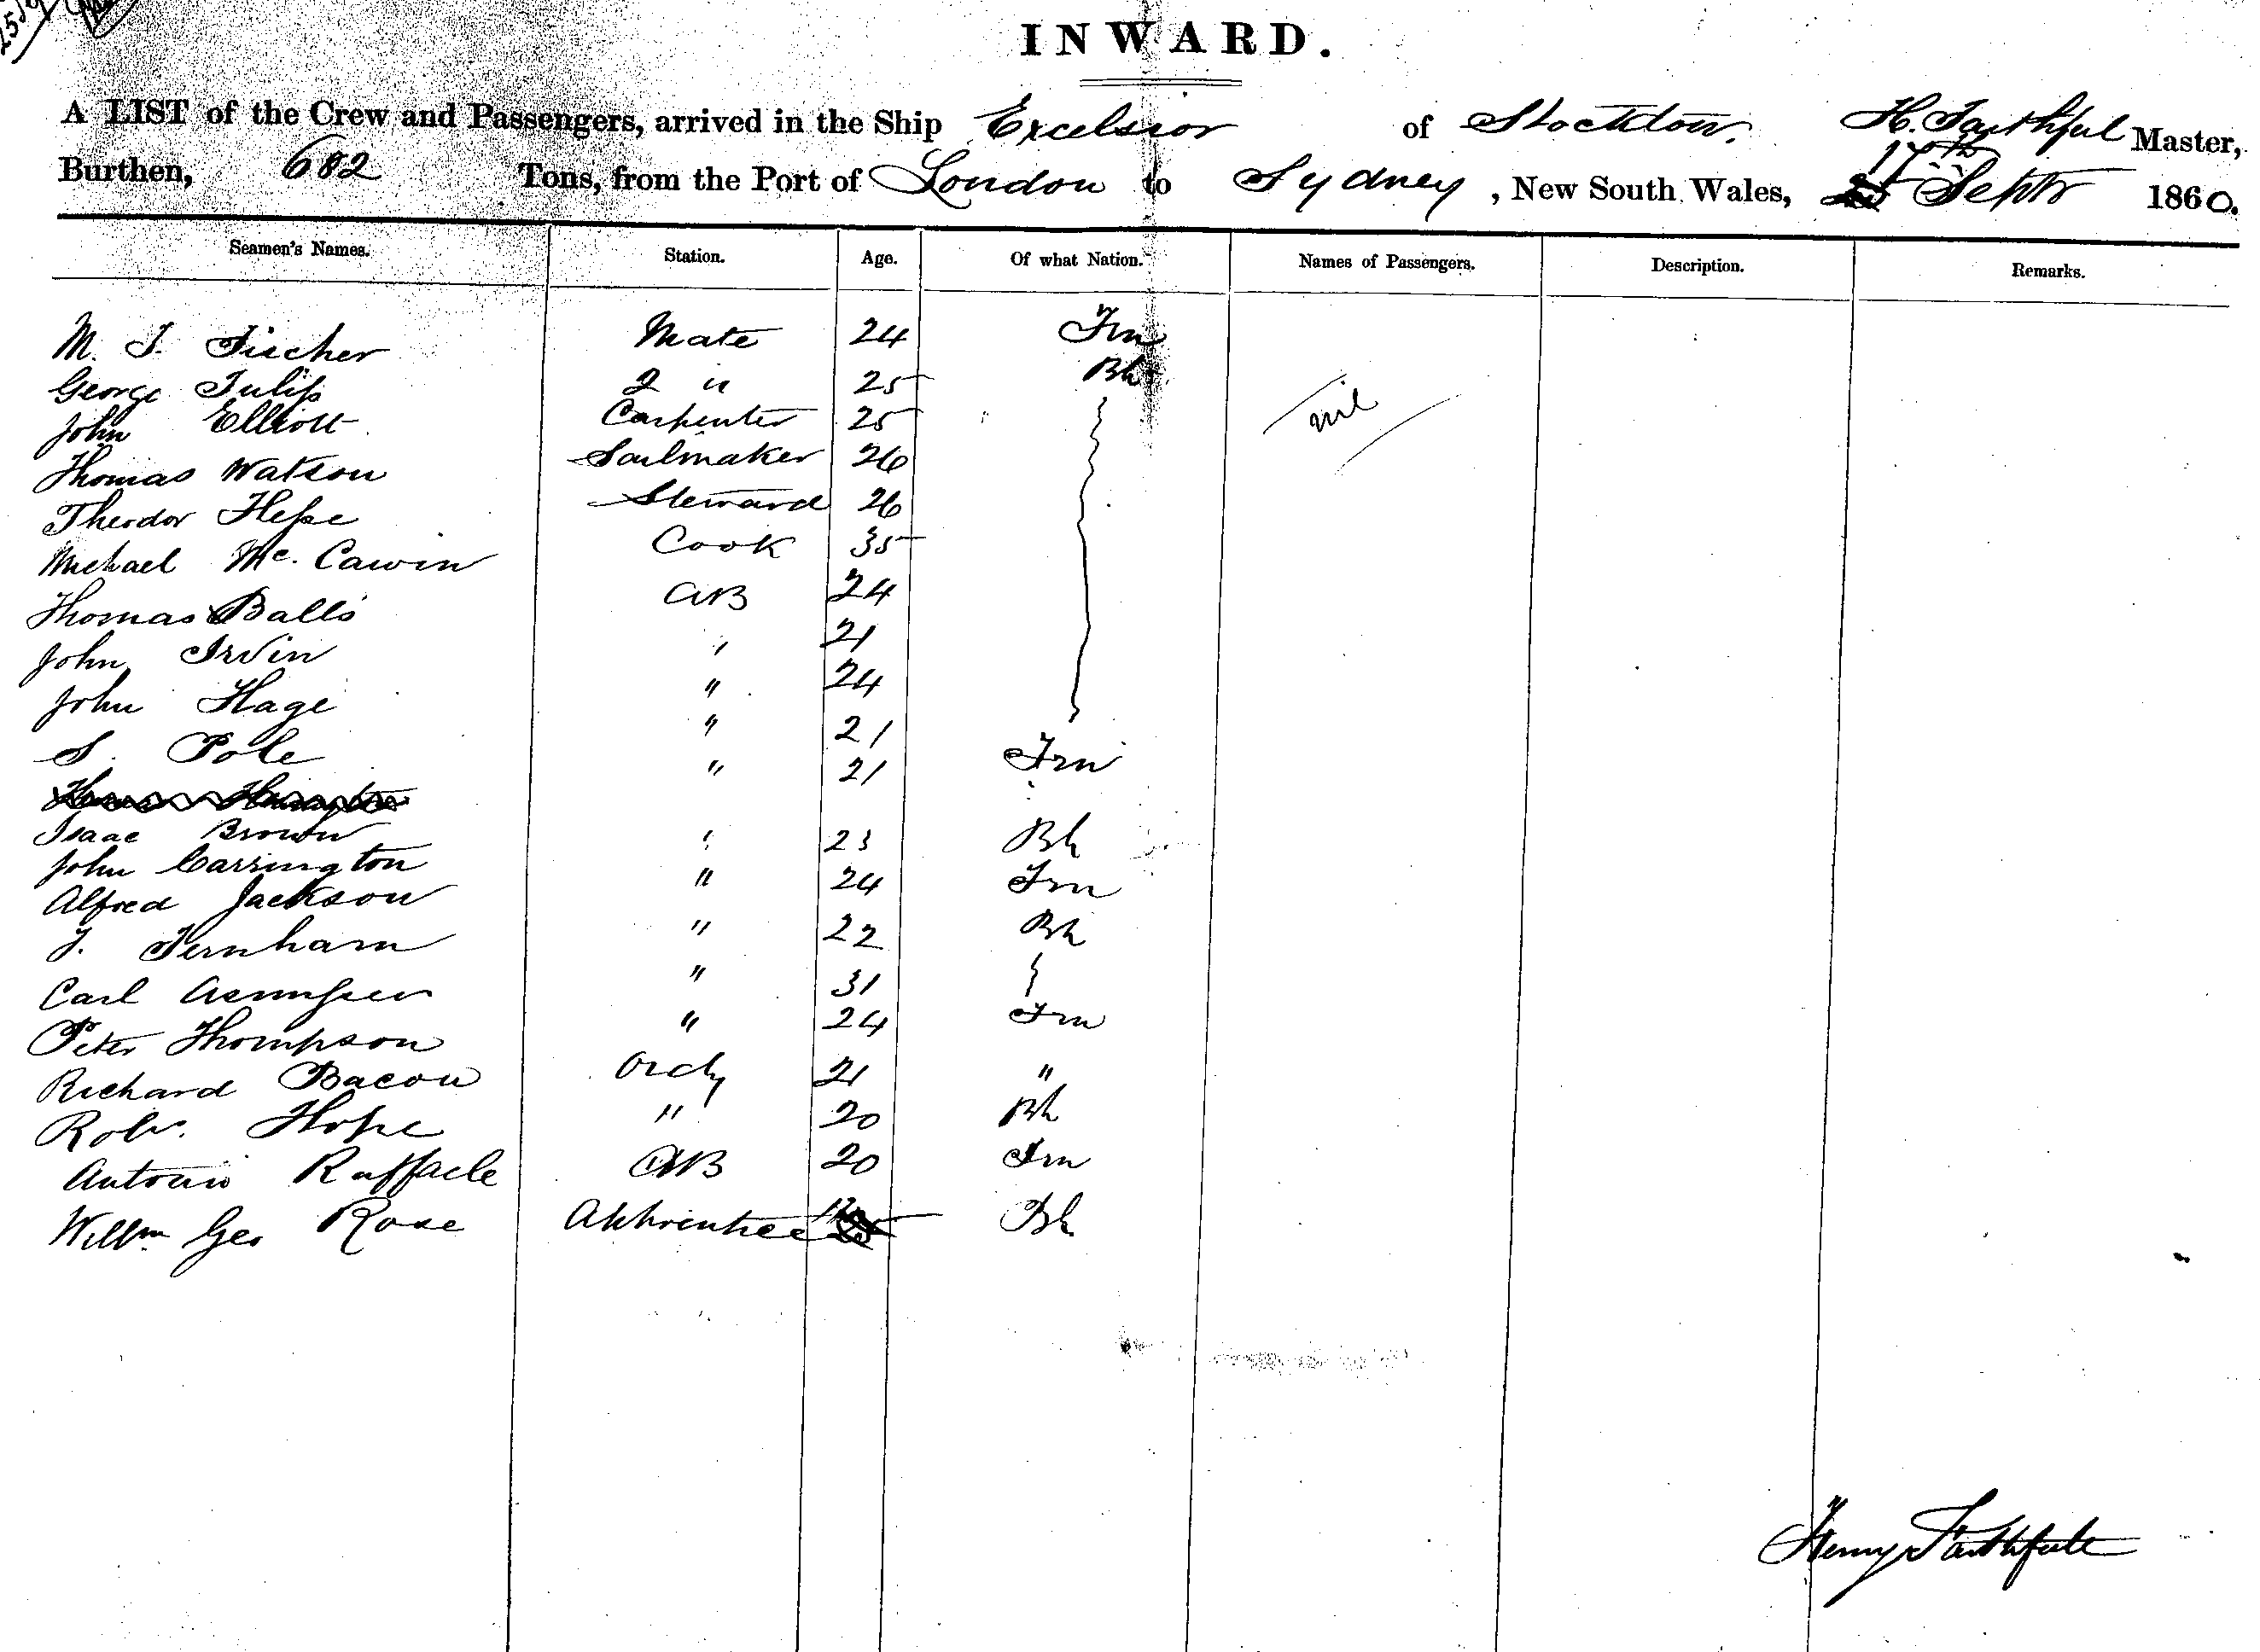 25 Sep
INWARD.
A LIST of the Crew and Passengers, arrived in the Ship Excelsior of Stockton. H. Faithful Master,
Burthen, 682 Tons, from the Port of London to Sydney, New South Wales, 17th Septr 1860.
Seamen's Names. Station. Age. Of what Nation. Names of Passengers. Description. Remarks.
M. J. Fischer Mate 24 Frn
George Tulip 2 " 25 Bh
John Elliott Carpenter 25 nil
Thomas Watson Sailmaker 26
Theodor Steward 26
Michael Mc. Cawin Cook 35
Thomas Balls AB 24
John Irvin " 21
John Hage " 24
S. Pole " 21
" 21 Frn
Isaac Brown " 23 Bh
John Carrington " 24 Frn
Alfred Jackson " 22 Bh
J. Fernham " 31
Carl " 24 Frn
Peter Thompson Ordy 21 "
Richard Bacon " 20 Bh
Robt. Hope AB 20 Frn
Antonio Raffaele Apprentice Bh
Willm Geo Rose
Henry Faithfull